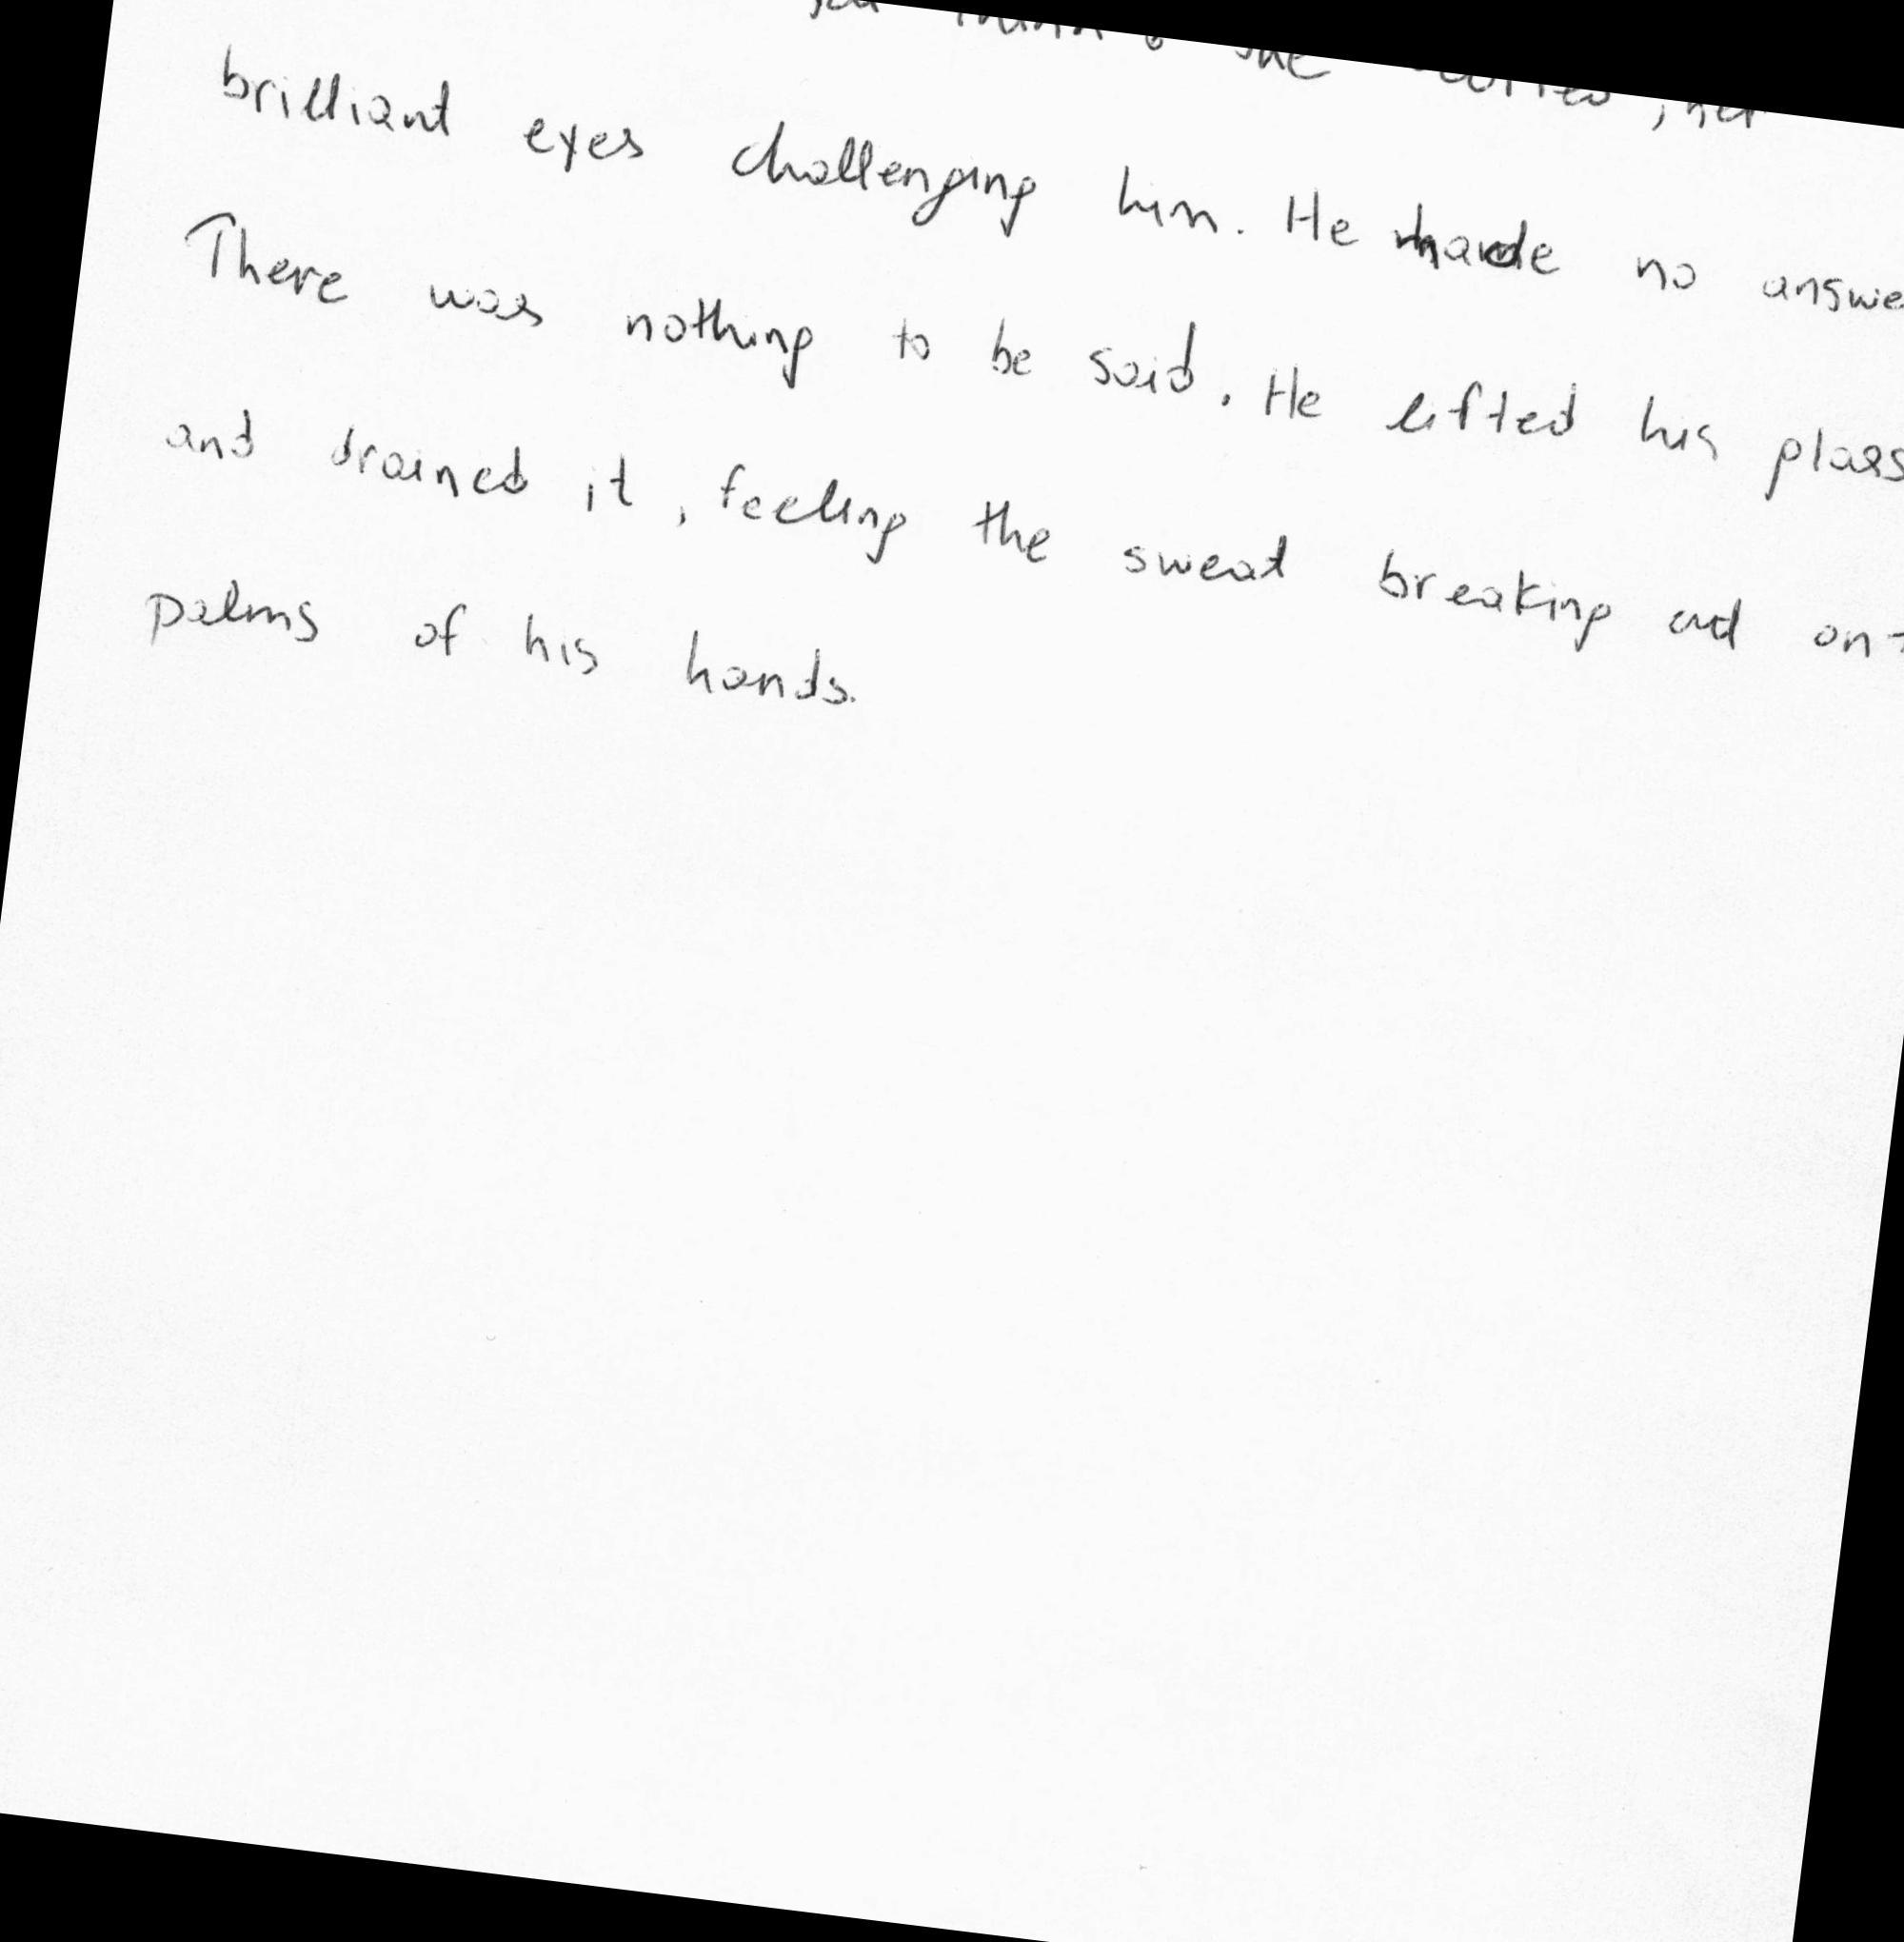 she , her
brilliant eyes challenging him. He made no answe
There was nothing to be said. He lifted his glass
and drained it, feeling the sweat breaking out on
palms of his hands.